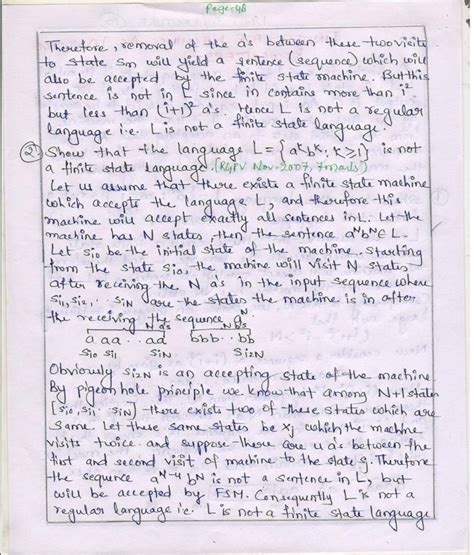 Page-48
Therefore, removal of the a's between these two visits
to state Sm will yield a sentence (sequence) which will
also be accepted by the finite state machine. But this
sentence is not in L since in contains more than i²
but less than (i+1)² a's. Hence L is not a regular
language i.e. L is not a finite state language.
② Show that the language L = {aᵏbᵏ; k≥1} is not
a finite state language. [RGPV Nov-2007, 7marks]
Let us assume that there exists a finite state machine
which accepts the language L, and therefore this
machine will accept exactly all sentences in L. Let the
machine has N states, then the sentence aᴺbᴺ∈L.
Let Sio be the initial state of the machine. Starting
from the state Sio, the machine will visit N states
after receiving the N a's in the input sequence where
Si1, Si2, .. SiN are the states the machine is in after
the receiving the sequence aᴺ
N a's N b's
a aa .. aa bbb .. bb
Sio Si1 SiN Si2N
Obviously Si2N is an accepting state of the machine
By pigeonhole principle we know that among N+1 states
[Sio, Si1 .. SiN] there exists two of these states which are
same. Let these same states be xj which the machine
visits twice and suppose there are u a's between the
first and second visit of machine to the state Sj. Therefore
the sequence aᴺ⁻ᵘ bᴺ is not a sentence in L, but
will be accepted by FSM. Consequently L is not a
regular language i.e. L is not a finite state language